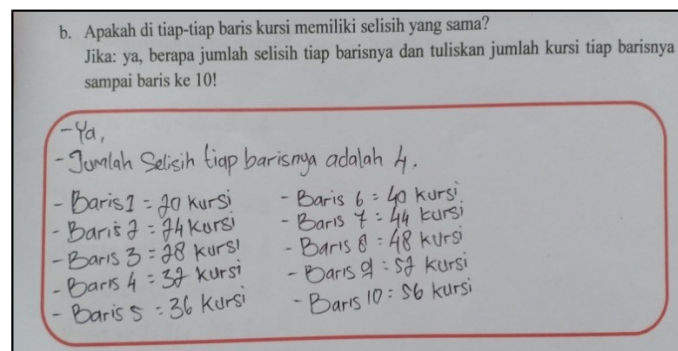 b. Apakah di tiap-tiap baris kursi memiliki selisih yang sama?
Jika: ya, berapa jumlah selisih tiap barisnya dan tuliskan jumlah kursi tiap barisnya
sampai baris ke 10!
- Ya,
- Jumlah Selisih tiap barisnya adalah 4.
- Baris 1 = 20 kursi
- Baris 2 = 24 kursi
- Baris 3 = 28 kursi
- Baris 4 = 32 kursi
- Baris 5 = 36 kursi
- Baris 6 = 40 kursi
- Baris 7 = 44 kursi
- Baris 8 = 48 kursi
- Baris 9 = 52 kursi
- Baris 10 = 56 kursi